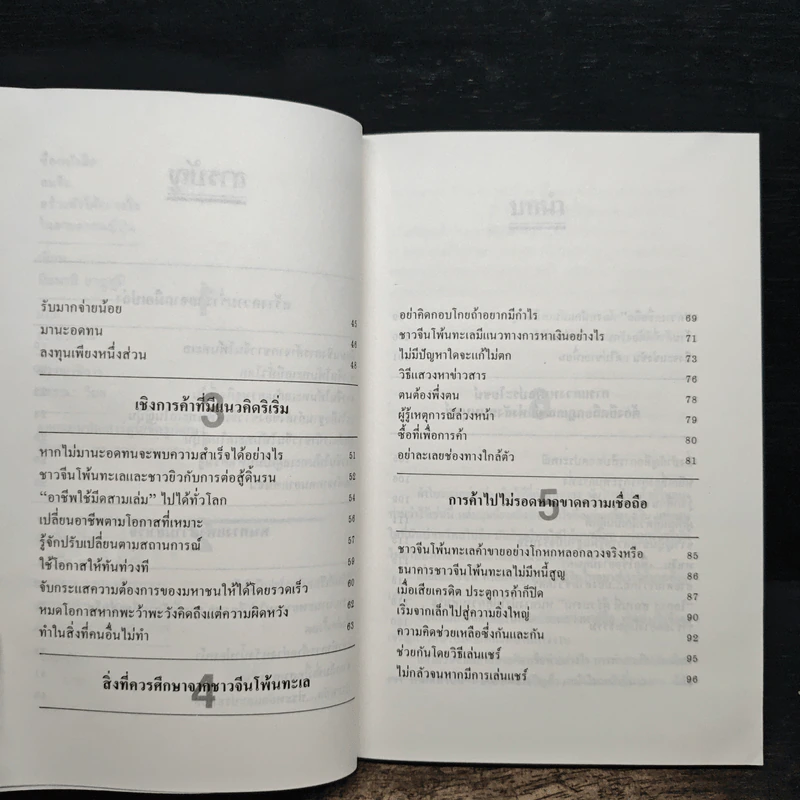 รับมากจ่ายน้อย 45
มานะอดทน 46
ลงทุนเพียงหนึ่งส่วน 48
3
เชิงการค้าที่มีแนวคิดริเริ่ม
หากไม่มานะอดทนจะพบความสำเร็จได้อย่างไร 51
ชาวจีนโพ้นทะเลและชาวยิวกับการต่อสู้ดิ้นรน 52
"อาชีพใช้มีดสามเล่ม" ไปได้ทั่วโลก 54
เปลี่ยนอาชีพตามโอกาสที่เหมาะ 56
รู้จักปรับเปลี่ยนตามสถานการณ์ 57
ใช้โอกาสให้ทันท่วงที 59
จับกระแสความต้องการของมหาชนให้ได้โดยรวดเร็ว 60
หมดโอกาสหากพะว้าพะวังคิดถึงแต่ความผิดหวัง 62
ทำในสิ่งที่คนอื่นไม่ทำ 63
4
สิ่งที่ควรศึกษาจากชาวจีนโพ้นทะเล
อย่าคิดกอบโกยถ้าอยากมีกำไร 69
ชาวจีนโพ้นทะเลมีแนวทางการหาเงินอย่างไร 71
ไม่มีปัญหาใดจะแก้ไม่ตก 73
วิธีแสวงหาข่าวสาร 76
ตนต้องพึ่งตน 78
ผู้รู้เหตุการณ์ล่วงหน้า 79
ซื้อที่เพื่อการค้า 80
อย่าละเลยช่องทางใกล้ตัว 81
5
การค้าไปไม่รอดหากขาดความเชื่อถือ
ชาวจีนโพ้นทะเลค้าขายอย่างโกหกหลอกลวงจริงหรือ 85
ธนาคารชาวจีนโพ้นทะเลไม่มีหนี้สูญ 86
เมื่อเสียเครดิต ประตูการค้าก็ปิด 87
เริ่มจากเล็กไปสู่ความยิ่งใหญ่ 90
ความคิดช่วยเหลือซึ่งกันและกัน 92
ช่วยกันโดยวิธีเล่นแชร์ 95
ไม่กลัวจนหากมีการเล่นแชร์ 96